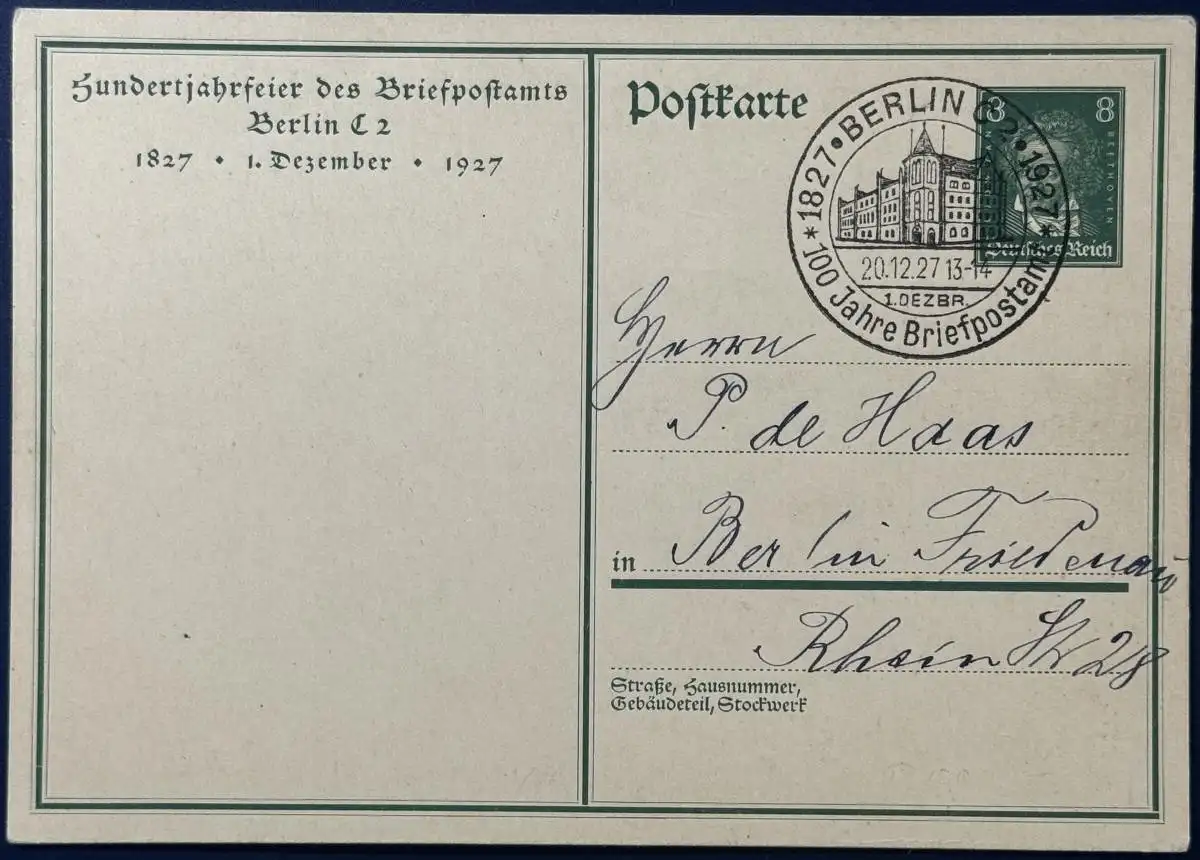 Hundertjahrfeier des Briefpostamts
Berlin C 2
1827 • 1. Dezember • 1927
Postkarte
8 8
BEETHOVEN
Deutsches Reich
* 1827 • BERLIN C 2 • 1927 *
20.12.27 13-14
1. DEZBR.
100 Jahre Briefpostamt
Herrn
P. de Haas
in Berlin Friedenau
Rhein Str 28
Straße, Hausnummer,
Gebäudeteil, Stockwerk